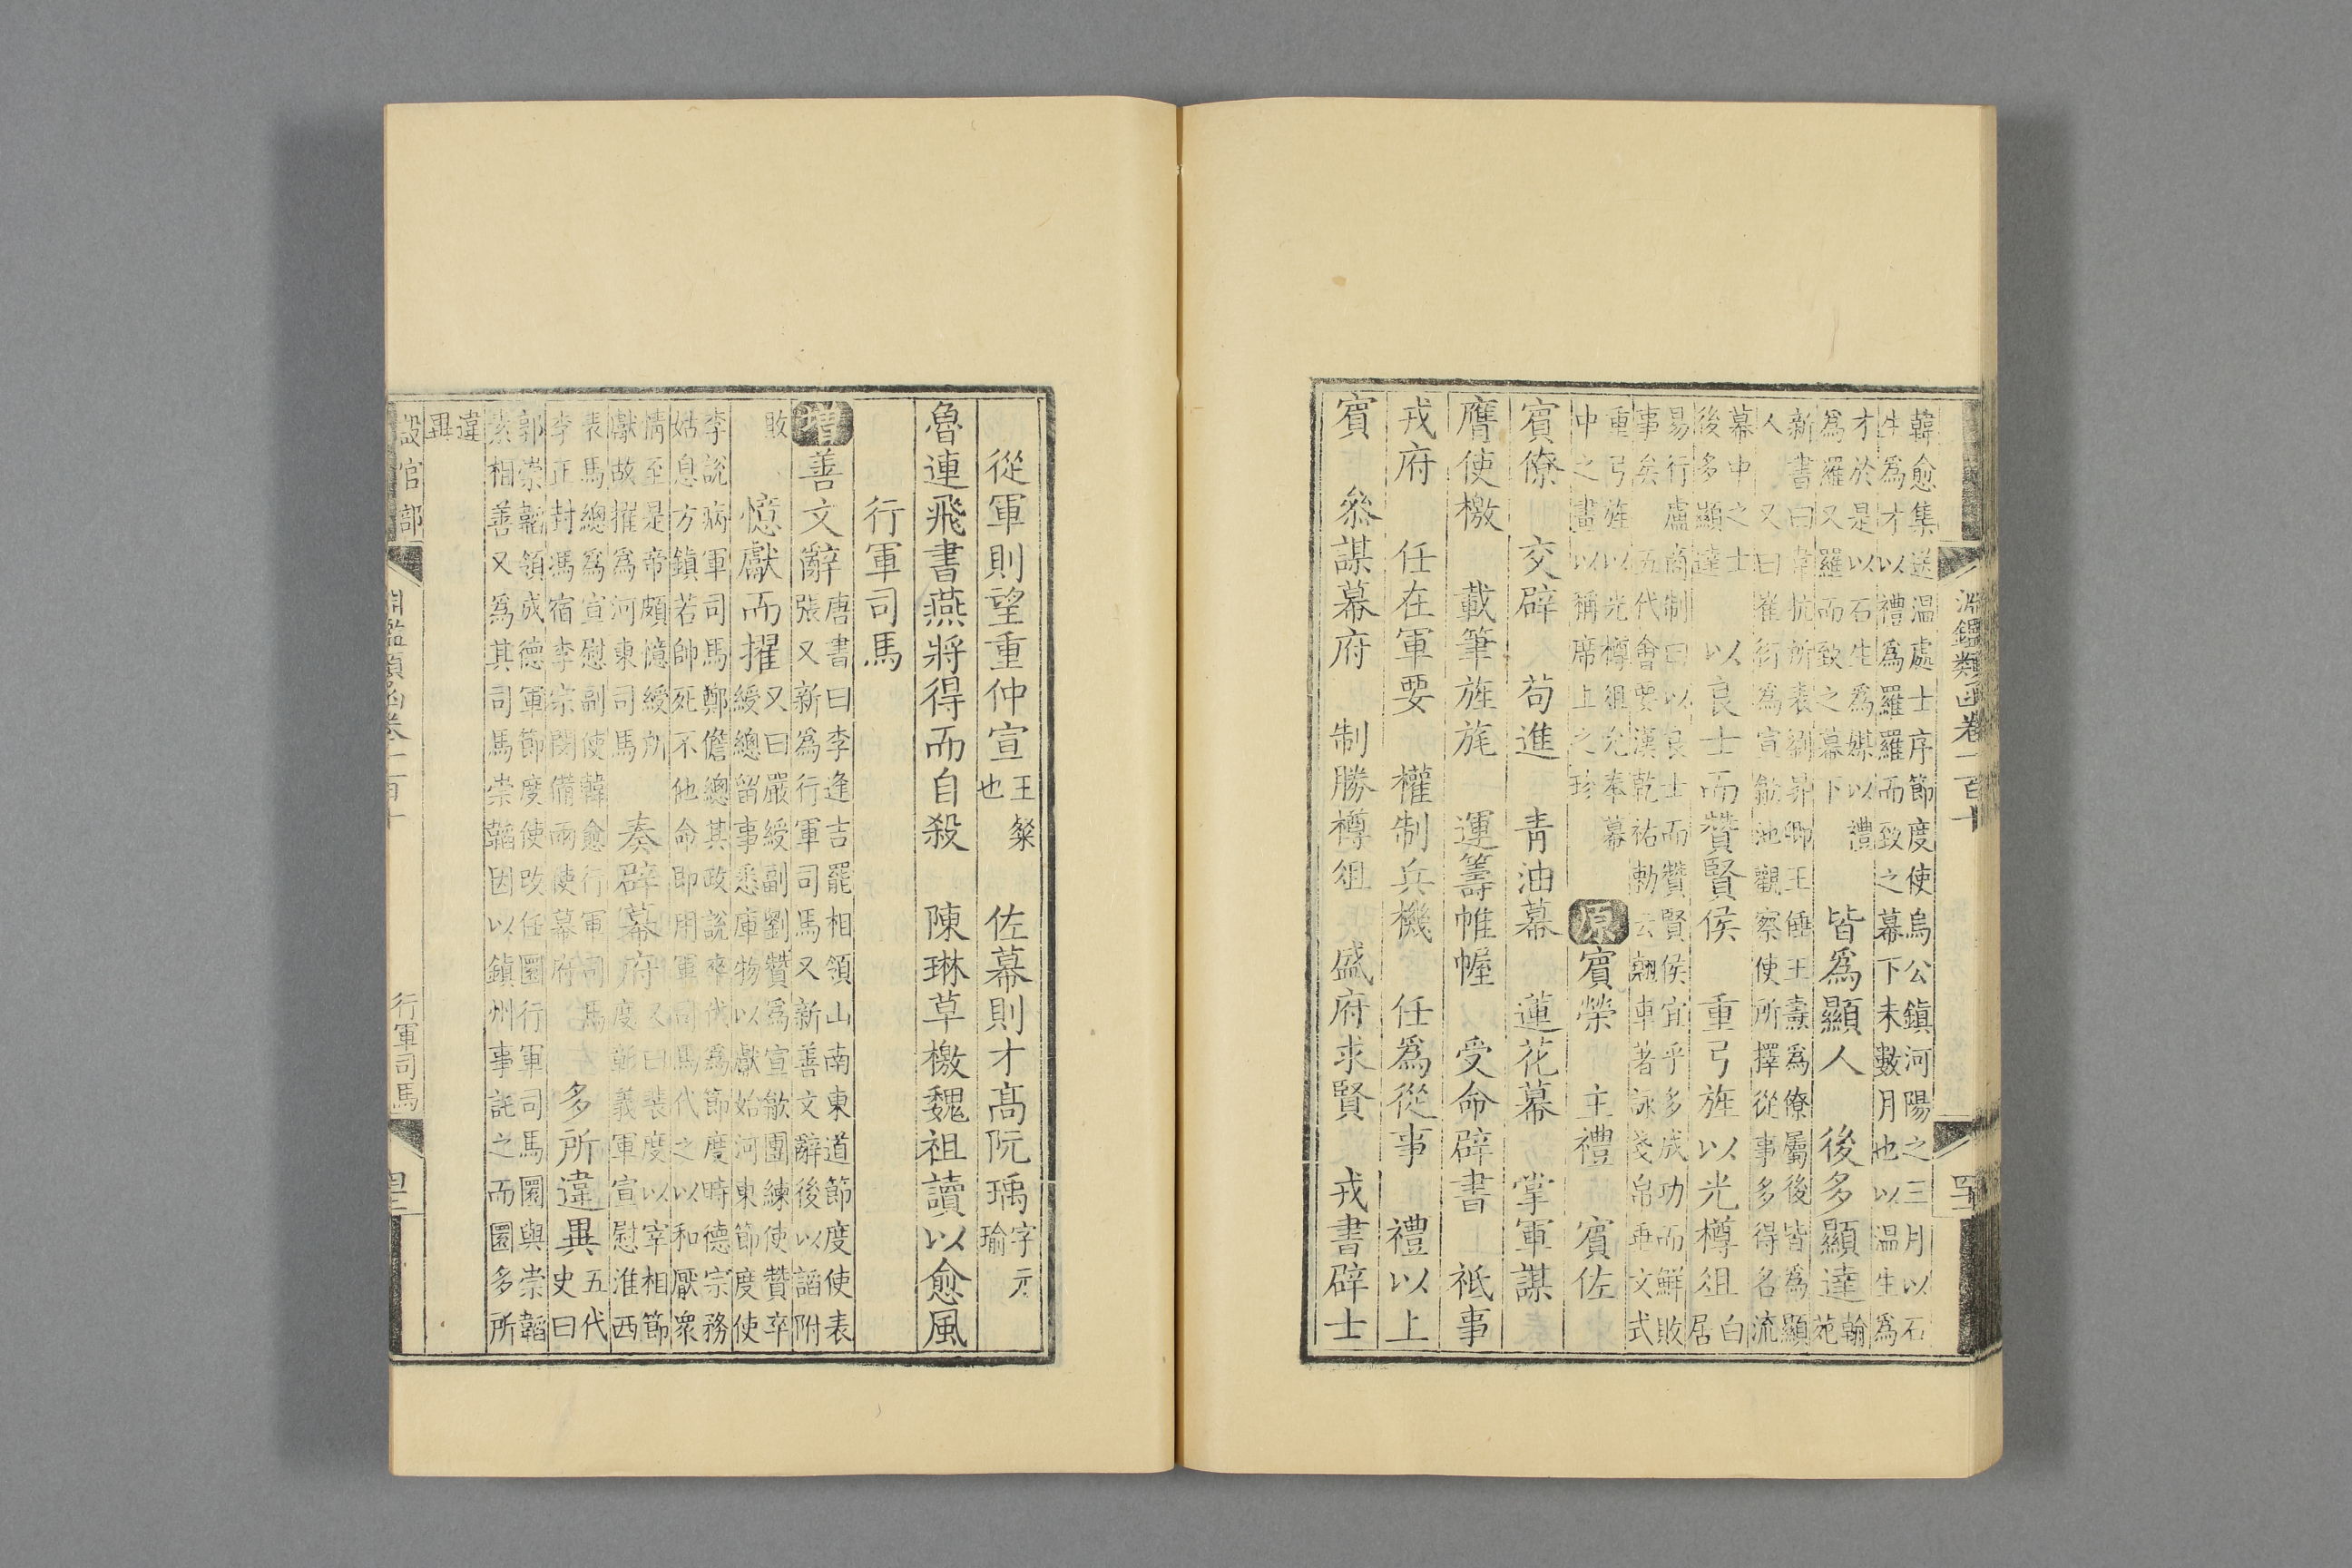 淵鑑類函卷一百十
韓愈集送溫處士序節度使烏公鎮河陽之三月以石
生爲才以禮爲羅羅而致之幕下未數月也以溫生爲
才於是以石生爲媒以禮
爲羅又羅而致之幕下
皆爲顯人
後多顯達
翰
苑
新書曰韋抗所表劉昴卿王𠊧王燾爲僚屬後皆爲顯
人 又曰崔衍爲宣歙池觀察使所擇從事多得名流
幕中之士
後多顯達
以良士而贊賢侯
重弓旌以光樽俎
白
居
易行盧商制曰以良士而贊賢侯宜乎多成功而鮮敗
事矣 五代會要漢乾祐勅云翹車著詠戔帛垂文式
重弓旌以光樽俎允奉幕
中之畫以稱席上之珍
原賓榮 主禮 賓佐
賓僚 交辟 苟進 青油幕 蓮花幕 掌軍謀
膺使檄 載筆旌旄 運籌帷幄 受命辟書 祗事
戎府 任在軍要 權制兵機 任爲從事 禮以上
賓 叅謀幕府 制勝樽俎 盛府求賢 戎書辟士
從軍則望重仲宣
王粲
也
佐幕則才高阮瑀
字元
瑜
魯連飛書燕將得而自殺 陳琳草檄魏祖讀以愈風
行軍司馬
增善文辭
唐書曰李逢吉罷相領山南東道節度使表
張又新爲行軍司馬又新善文辭後以諂附
敗
憶獻而擢
又曰嚴綬副劉贊爲宣歙團練使贊卒
綬總留事悉庫物以獻始河東節度使
李說病軍司馬鄭儋總其政說卒代爲節度時德宗務
姑息方鎮若帥死不他命即用軍司馬代之以和厭衆
情至是帝頗憶綬所
獻故擢爲河東司馬
奏辟幕府
又曰裴度以宰相節
度彰義軍宣慰淮西
表馬總爲宣慰副使韓愈行軍司馬
李正封馮宿李宗閔備兩使幕府
多所違異
五代
史曰
郭崇韜領成德軍節度使改任圜行軍司馬圜與崇韜
素相善又爲其司馬崇韜因以鎮州事託之而圜多所
違
異
設官部
淵鑑類函卷一百十
行軍司馬